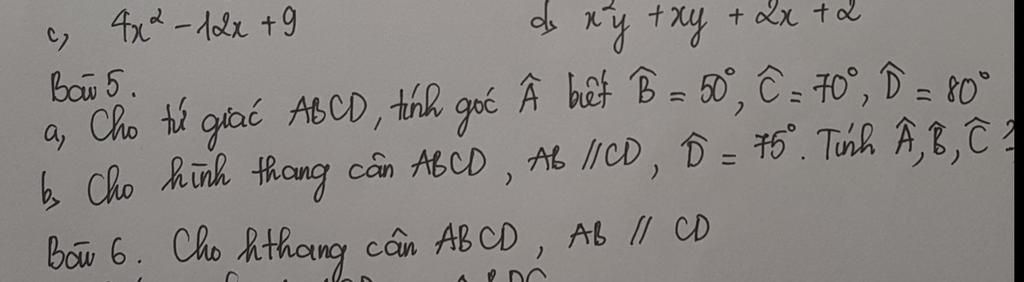 c, 4x² - 12x + 9 d, x²y + xy + 2x + 2
Bài 5.
a, Cho tứ giác ABCD, tính góc Â biết B̂ = 50°, Ĉ = 70°, D̂ = 80°
b, Cho hình thang cân ABCD, AB // CD, D̂ = 75°. Tính Â, B̂, Ĉ ?
Bài 6. Cho hthang cân ABCD, AB // CD